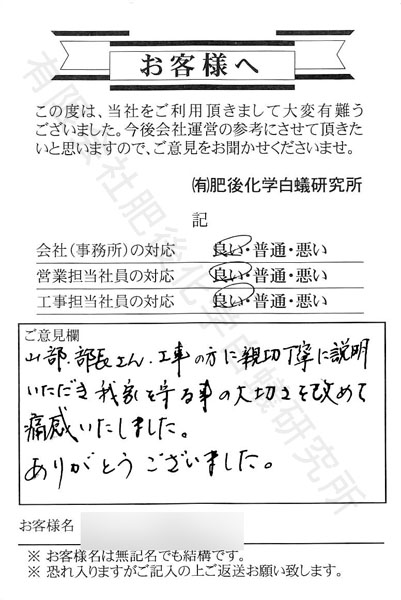 お客様へ
この度は、当社をご利用頂きまして大変有難う
ございました。今後会社運営の参考にさせて頂きた
いと思いますので、ご意見をお聞かせくださいませ。
㈲肥後化学白蟻研究所
記
会社(事務所)の対応 良い・普通・悪い
営業担当社員の対応 良い・普通・悪い
工事担当社員の対応 良い・普通・悪い
ご意見欄
山部.部長さん.工事の方に親切丁寧に説明
いただき我家を守る事の大切さを改めて
痛感いたしました。
ありがとうございました。
お客様名
※ お客様名は無記名でも結構です。
※ 恐れ入りますがご記入の上ご返送お願い致します。
有限会社肥後化学白蟻研究所